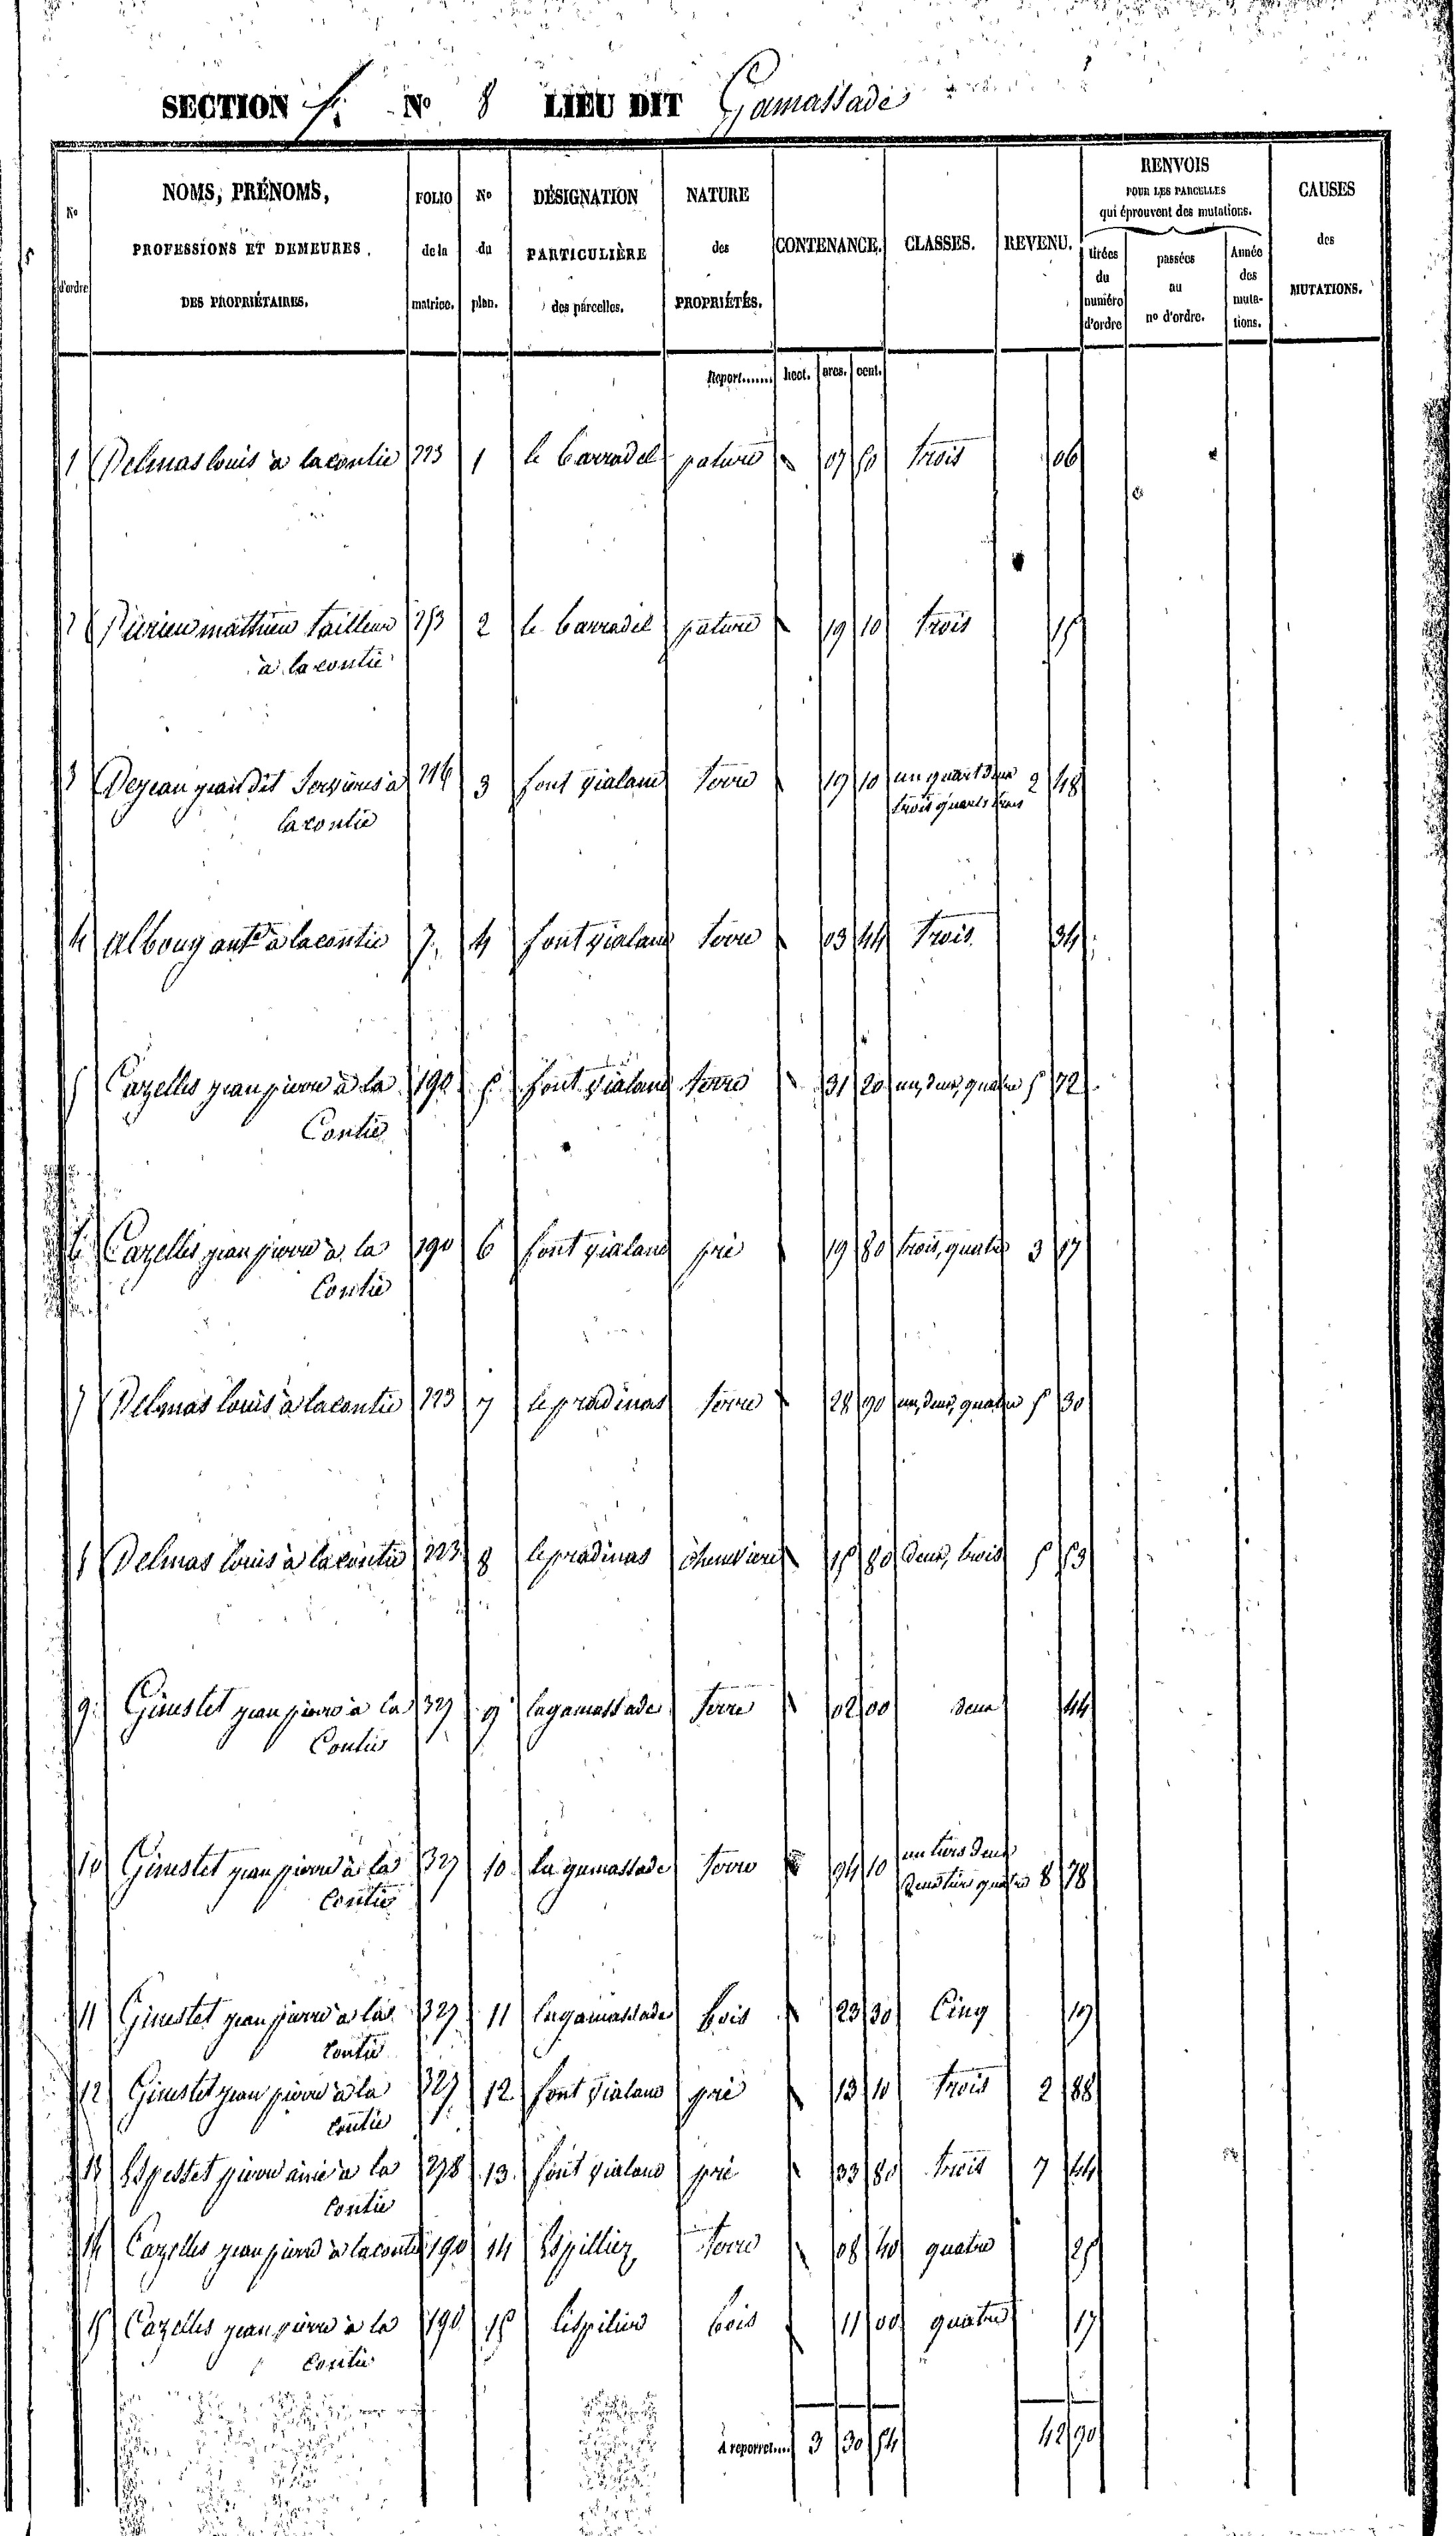 SECTION F. No 8 LIEU DIT Gamassade
No d'ordre
NOMS, PRÉNOMS,
PROFESSIONS ET DEMEURES
DES PROPRIÉTAIRES.
FOLIO de la matrice.
No du plan.
DÉSIGNATION PARTICULIÈRE des parcelles.
NATURE des PROPRIÉTÉS.
CONTENANCE.
CLASSES.
REVENU.
RENVOIS
POUR LES PARCELLES
qui éprouvent des mutations.
tirées du numéro d'ordre
passées au no d'ordre.
Année des muta-tions.
CAUSES des MUTATIONS.
Report...... hect. ares. cent.
1 Delmas louis à lacontie 223 1 le barradel pature 07 50 trois 06
2 mathieu tailleur 253 2 le barradel pature 19 10 trois 15
à la contie
3 Dejean jean dit à 216 3 font gialane terre 19 10 un quart deux 2 48
trois quarts trois
lacontie
4 Albouy ante à lacontie 7. 4 font gialane terre 03 44 trois 34
5 Cazelles jean pierre à la 190 5 font gialane terre 31 20 un, deux, quatre 5 72
Contie
6 Cazelles jean pierre à la 190 6 font gialane pré 19 80 trois, quatre 3 17
Contie
7 Delmas louis à lacontie 223 7 le pradinas terre 28 90 un, deux, quatre 5 30
8 Delmas louis à lacontie 223 8 le pradinas cheneviere 15 80 deux, trois 5 53
9 Ginestet jean pierre à la 327 9 la gamassade terre 02 00 deux 44
Contie
10 Ginestet jean pierre à la 327 10 la gamassade terre 94 10 un tiers deux
deux tiers quatre 8 78
Contie
11 Ginestet jean pierre à la 327 11 la gamassade bois 23 30 Cinq 19
Contie
12 Ginestet jean pierre à la 327 12 font gialane pré 13 10 trois 2 88
Contie
13 Espesset pierre ainé à la 278 13 font gialane pré 33 80 trois 7 44
Contie
14 Cazelles jean pierre à lacontie 190 14 terre 08 40 quatre 25
15 Cazelles jean pierre à la 190 15 bois 11 00 quatre 17
Contie
A reporter.... 3 30 54 42 90